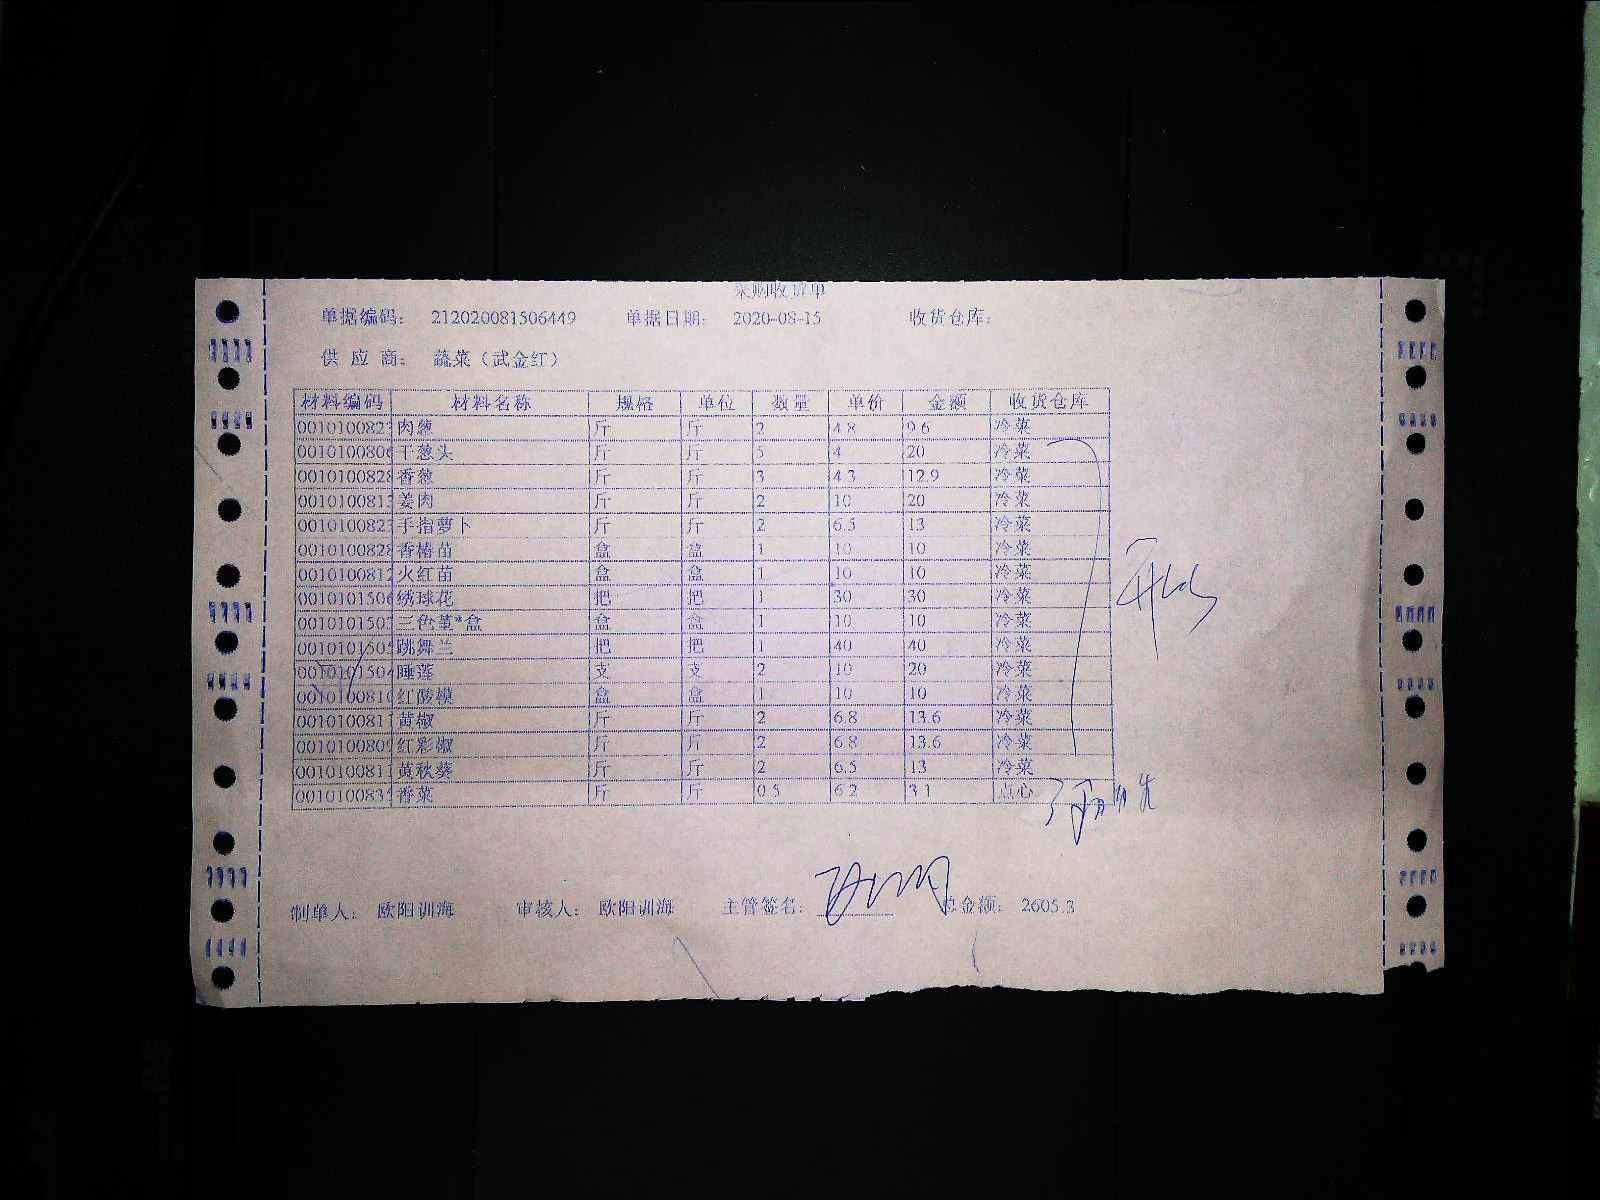 采购收货单
单据编码: 212020081506449 单据日期: 2020-08-15 收货仓库:
供 应 商: 蔬菜（武金红）
材料编码 材料名称 规格 单位 数量 单价 金额 收货仓库
001010082 肉葱 斤 斤 2 4.8 9.6 冷菜
001010080 干葱头 斤 斤 5 4 20 冷菜
001010082 香葱 斤 斤 3 4.3 12.9 冷菜
001010081 姜肉 斤 斤 2 10 20 冷菜
001010082 手指萝卜 斤 斤 2 6.5 13 冷菜
001010082 香椿苗 盒 盒 1 10 10 冷菜
001010081 火红苗 盒 盒 1 10 10 冷菜
001010150 绣球花 把 把 1 30 30 冷菜
001010150 三色堇*盒 盒 盒 1 10 10 冷菜
001010150 跳舞兰 把 把 1 40 40 冷菜
001010150 睡莲 支 支 2 10 20 冷菜
001010081 红酸模 盒 盒 1 10 10 冷菜
001010081 黄椒 斤 斤 2 6.8 13.6 冷菜
001010080 红彩椒 斤 斤 2 6.8 13.6 冷菜
001010081 黄秋葵 斤 斤 2 6.5 13 冷菜
001010083 香菜 斤 斤 0.5 6.2 3.1 点心
制单人: 欧阳训海 审核人: 欧阳训海 主管签名: 总金额: 2605.3